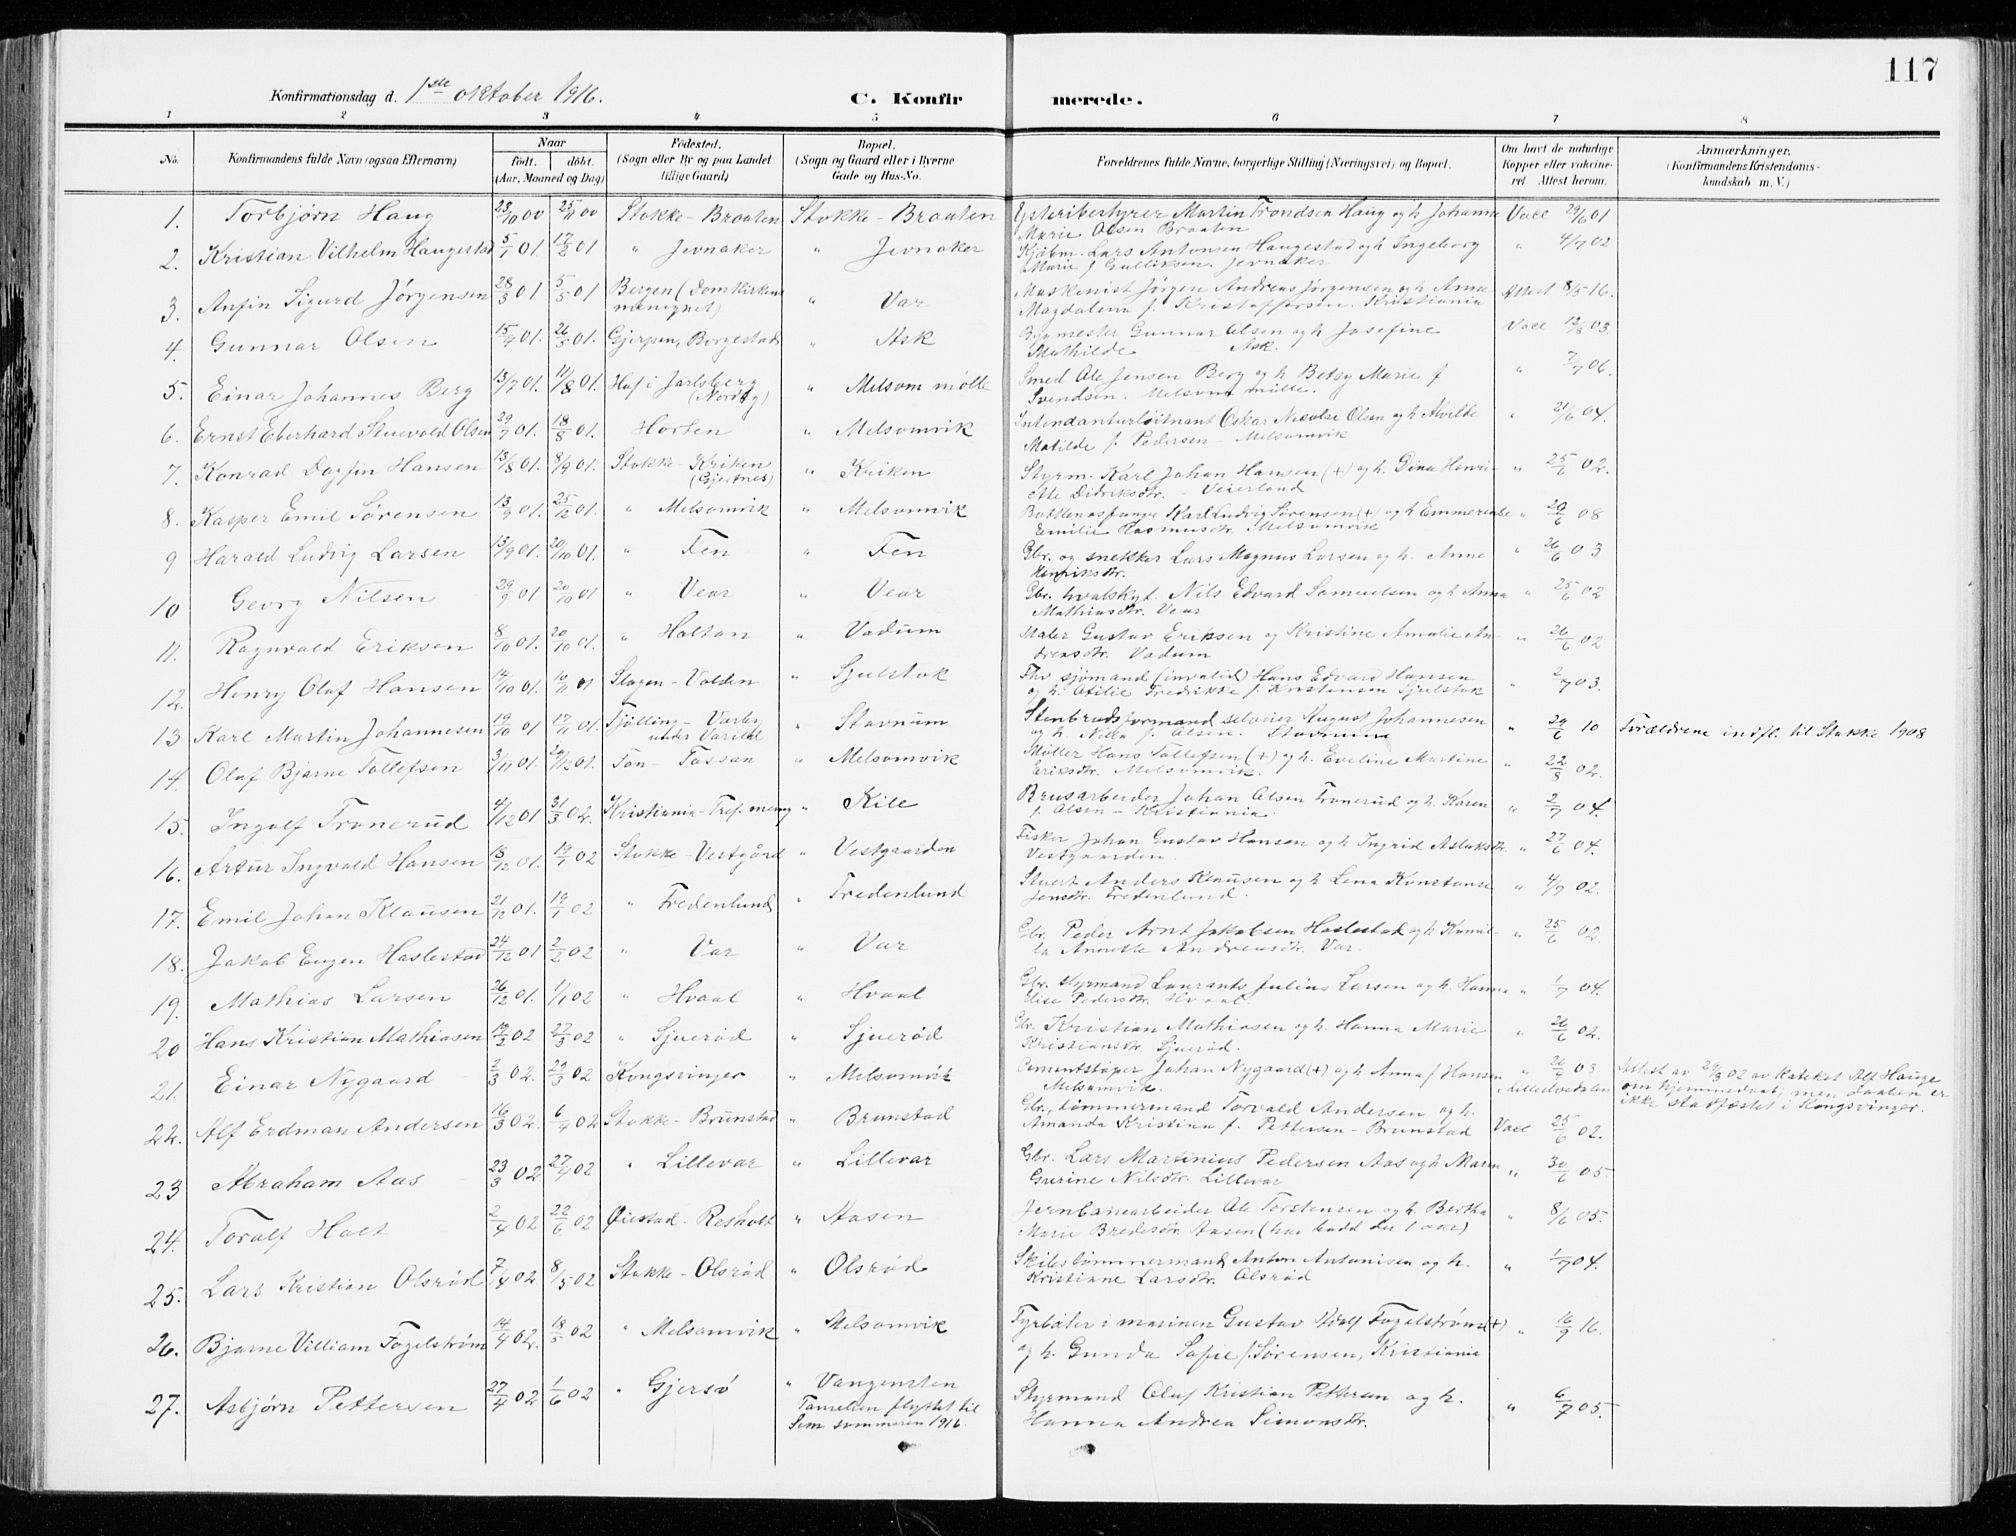 117
Konfirmationsdag d. 1ste oktober 1916.
C. Konfirmerede.
1 2 3 4 5 6 7 8
No. Konfirmandens fulde Navn (ogsaa Efternavn) Naar født. døbt. (Aar, Maaned og Dag) Fødested. (Sogn eller By og paa Landet tillige Gaard) Bopæl. (Sogn og Gaard eller i Byerne Gade og Hus-No. Forældrenes fulde Navne, borgerlige Stilling (Næringsvei) og Bopæl. Om havt de naturlige Kopper eller vakcineret. Attest herom. Anmærkninger. (Konfirmandens Kristendomskundskab m. V.)
1. Torbjørn Haug 23/10 00 25/11 00 Stokke - Braaten Stokke - Braaten Ysteribestyrer Martin Trondsen Haug og h. Johanne Vacc 29/6 01
Marie Olsen Braaten
2. Kristian Vilhelm Haugestad 5/1 01 17/2 01 " Jevnaker " Jevnaker Kjøbm. Lars Antonsen Haugestad og h. Ingeborg " 4/7 02
Marie f. Gulliksen. Jevnaker
3. Anfin Sigurd Jørgensen 28/3 01 5/5 01 Bergen (Domkirkens " Var Maskinist Jørgen Andreas Jørgensen og h. Anna Attest 8/5 16.
menighet) Magdalena f. Kristoffersen. Kristiania
4. Gunnar Olsen 15/4 01. 26/5 01. Gjerpen, Borgestad " Ask Bygmester Gunnar Olsen og h. Josefine Vacc 13/8 03
Mathilde Ask.
5. Einar Johannes Berg 13/7 01. 11/8 01. Haf i Jarlsberg " Melsom mølle Smed Ole Jensen Berg og h. Betsy Marie f " 7/7 06.
(Nordby) Svendsen. Melsom mølle.
6. Ernst Eberhard Stuevold Olsen 29/7 01. 18/8 01. Horten " Melsomvik Intendanturløitnant Oskar Nicolai Olsen og h. Alvilde " 21/6 04.
Matilde f. Pedersen - Melsomvik
7. Konrad Dagfin Hansen 13/8 01. 8/9 01. Stokke - Kriken " Kriken Styrm. Karl Johan Hansen (+) og h. Dina Henri- " 25/6 02.
(Gjertnes) ette Didriksdtr. - Veierland
8. Kasper Emil Sørensen 13/9 01. 25/12 01. " Melsomvik " Melsomvik Karl Ludvig Sørensen (+) og h. Emmerense " 20/6 08
Emilie Rasmusdtr. Melsomvik
9 Harald Ludvig Larsen 13/9 01. 20/10 01. " Fen " Fen Gbr. og snekker Lars Magnus Larsen og h. Anne " 26/6 03
Henriksdtr.
10 Georg Nilsen 29/9 01 20/10 01 " Vear " Vear Gbr. hvalskyt. Nils Edvard Samuelsen og h. Anna " 25/6 02
Mathiasdtr. Vear
11. Ragnvald Eriksen 8/10 01. 20/10 01. " Holtan " Vadum Maler Gustav Eriksen og Kristine Amalie An- " 26/6 02
dreasdtr. Vadum
12. Henry Olaf Hansen 14/10 01. 10/11 01 Slagen - Volden " Sjulstok Fhv. sjømand (invalid) Hans Edvard Hansen " 2/7 03.
og h. Otilie Fredrikke f. Kristensen Sjulstok
13 Karl Martin Johannesen 19/10 01 17/11 01. Tjølling - Varby " Stavnum Stenbrudsformand selveier August Johannesen " 29/6 10 Forældrene indfl. til Stokke 1908
og h. Nilla f. Olsen. Stavnum
14. Olaf Bjarne Tollefsen 3/11 01. 29/12 01. Fon - Fossan " Melsomvik Møller Hans Tollefsen (+) og h. Eveline Martine " 22/8 02.
Eriksdtr. Melsomvik.
15. Ingolf Tronerud 4/12 01 31/3 02. Kristiania - Tref. menig " Kile Brusarbeider Johan Olsen Tronerud og h. Karen " 2/7 04.
f. Olsen - Kristiania.
16. Artur Ingvald Hansen 18/12 01. 19/1 02 Stokke - Vestgård " Vestgaarden Fisker Johan Gustav Hansen og h. Ingrid Aslaksdtr. " 27/6 04.
Vestgaarden.
17. Emil Johan Klausen 21/12 01. 19/1 02 " Fredenlund " Fredenlund Stuert Anders Klausen og h. Lena Konstanse " 4/7 02.
Jensdtr. Fredenlund.
18. Jakob Eugen Haslestad 24/12 01 2/2 02 " Var " Var Gbr. Peder Arnt Jakobsen Haslestad og h. Kamil- " 25/6 02.
la Annette Andreasdtr. Var.
19. Mathias Larsen 26/12 01. 1/1 02 " Hvaal " Hvaal Gbr. styrmand Laurants Julius Larsen og h. Hanna " 1/7 04.
Elise Pedersdtr. Hvaal.
20 Hans Kristian Mathiasen 19/2 02 22/3 02 " Sjuerød " Sjuerød Gbr. Kristian Mathiasen og h. Hanna Marie " 26/6 02.
Kristiansdtr. Sjuerød.
21. Einar Nygaard 2/3 02. 29/3 02 Kongsvinger " Melsomvik Cementstøper Johan Nygaard (+) og h. Anna f. Hansen " 26/4 03 Attest av 29/3 02 av kateket Alf Hauge
Melsomvik. om hjemmedaab, men daaben er
ikke stadfæstet i Kongsvinger.
22. Alf Erdman Andersen 16/3 02. 6/4 02 Stokke - Brunstad " Brunstad Gbr., tømmermand Torvald Andersen og h.
Amanda Kristina f. Pettersen - Brunstad Vacc 25/6 02.
23 Abraham Aas 23/3 02 27/4 02 " Lillevar " Lillevar Gbr. Lars Martinius Pedersen Aas og h. Maren " 30/6 05.
Gurine Nilsdtr. Lillevar
24. Toralf Holt 2/4 02 22/6 02 Øiestad - Resholt " Aasen Jernbanearbeider Ole Torstensen og h. Bertha " 8/6 05.
Marie Bredesdtr. Aasen (har bodd der 1 aar)
25. Lars Kristian Olsrød 7/4 02 8/5 02 Stokke - Olsrød " Olsrød Skibstømmermand Anton Antonisen og h. " 1/7 04.
Kristiane Larsdtr. Olsrød
26. Bjarne Villiam Fogelstrøm 14/4 02. 18/5 02 " Melsomvik " Melsomvik Fyrbøter i marinen Gustav Adolf Fogelstrøm (+) " 16/9 16.
og h. Gunda Sofie f. Sørensen, Kristiania
27. Asbjørn Pettersen 27/4 02 1/6 02 " Gjersø " Vangensten Styrmand Oluf Kristian Pettersen og h. " 6/7 05.
Familien flyttet til Hanna Andrea Simonsdtr.
Sem sommeren 1916.